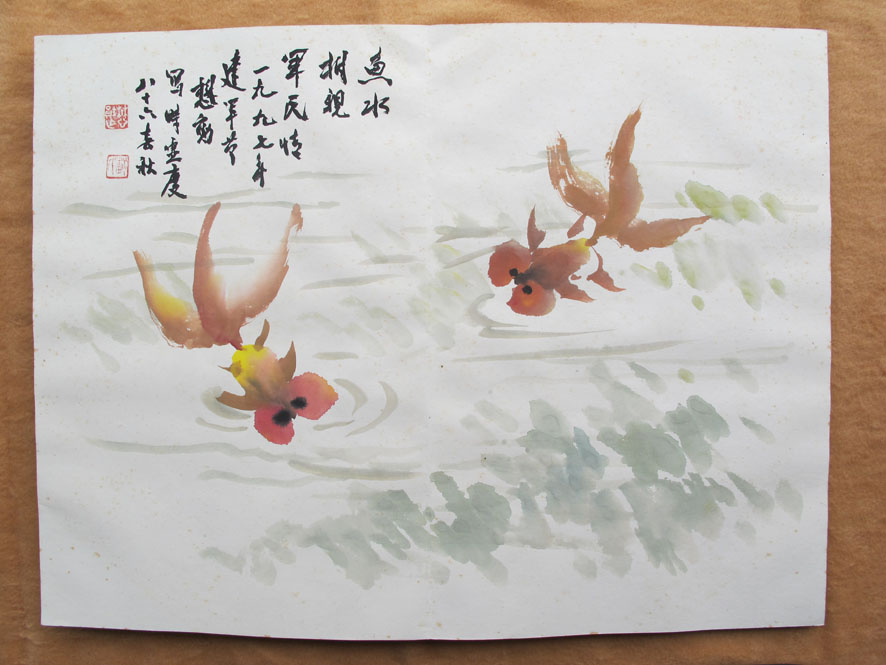 魚水
相親
軍民情
一九九七年
建軍节
懋勇
寫時虚度
八十六春秋